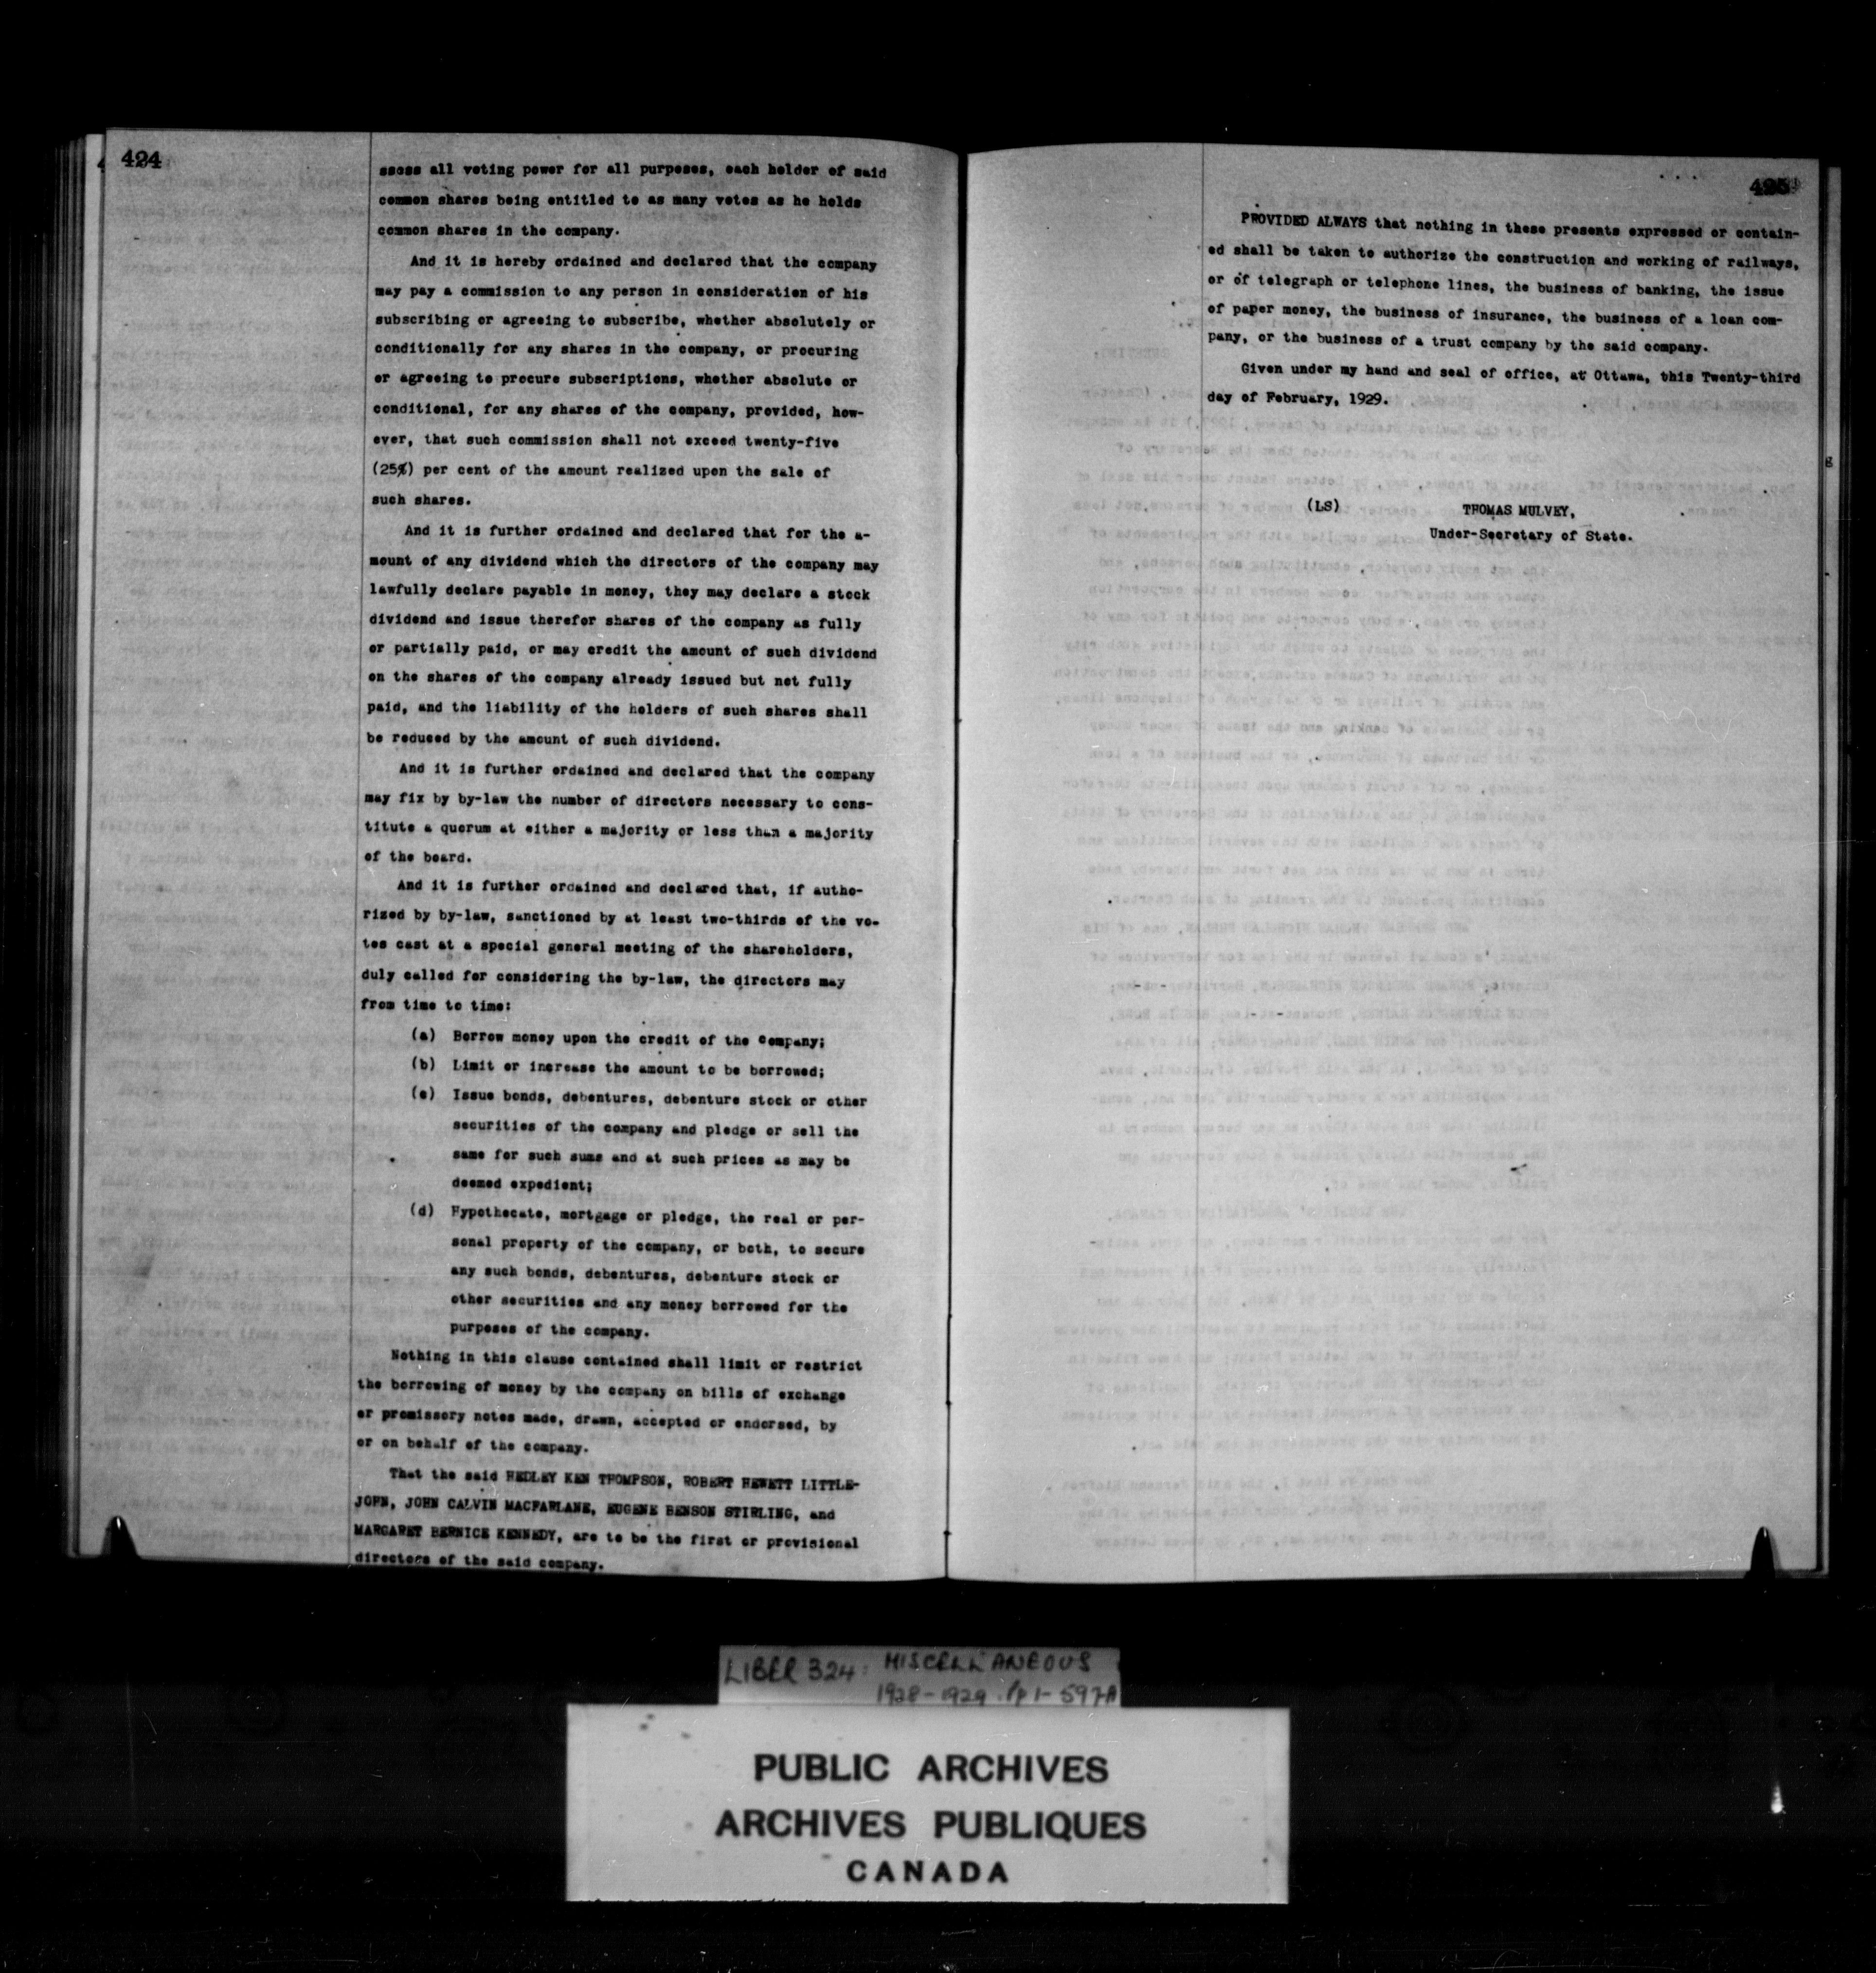 424
ssess all voting power for all purposes, each holder of said
common shares being entitled to as many votes as he holds
common shares in the company.
And it is hereby ordained and declared that the company
may pay a commission to any person in consideration of his
subscribing or agreeing to subscribe, whether absolutely or
conditionally for any shares in the company, or procuring
or agreeing to procure subscriptions, whether absolute or
conditional, for any shares of the company, provided, how-
ever, that such commission shall not exceed twenty-five
(25%) per cent of the amount realized upon the sale of
such shares.
And it is further ordained and declared that for the a-
mount of any dividend which the directors of the company may
lawfully declare payable in money, they may declare a stock
dividend and issue therefor shares of the company as fully
or partially paid, or may credit the amount of such dividend
on the shares of the company already issued but not fully
paid, and the liability of the holders of such shares shall
be reduced by the amount of such dividend.
And it is further ordained and declared that the company
may fix by by-law the number of directors necessary to cons-
titute a quorum at either a majority or less than a majority
of the board.
And it is further ordained and declared that, if autho-
rized by by-law, sanctioned by at least two-thirds of the vo-
tes cast at a special general meeting of the shareholders,
duly called for considering the by-law, the directors may
from time to time:
(a) Borrow money upon the credit of the company;
(b) Limit or increase the amount to be borrowed;
(c) Issue bonds, debentures, debenture stock or other
securities of the company and pledge or sell the
same for such sums and at such prices as may be
deemed expedient;
(d) Hypothecate, mortgage or pledge, the real or per-
sonal property of the company, or both, to secure
any such bonds, debentures, debenture stock or
other securities and any money borrowed for the
purposes of the company.
Nothing in this clause contained shall limit or restrict
the borrowing of money by the company on bills of exchange
or promissory notes made, drawn, accepted or endorsed, by
or on behalf of the company.
That the said HEDLEY KEN THOMPSON, ROBERT HEWETT LITTLE-
JOHN, JOHN CALVIN MACFARLANE, EUGENE BENSON STIRLING, and
MARGARET BERNICE KENNEDY, are to be the first or provisional
directors of the said company.
425
PROVIDED ALWAYS that nothing in these presents expressed or contain-
ed shall be taken to authorize the construction and working of railways,
or of telegraph or telephone lines, the business of banking, the issue
of paper money, the business of insurance, the business of a loan com-
pany, or the business of a trust company by the said company.
Given under my hand and seal of office, at Ottawa, this Twenty-third
day of February, 1929.
(LS) THOMAS MULVEY,
Under-Secretary of State.
LIBER 324: MISCELLANEOUS
1928-1929. Pp 1-597A
PUBLIC ARCHIVES
ARCHIVES PUBLIQUES
CANADA